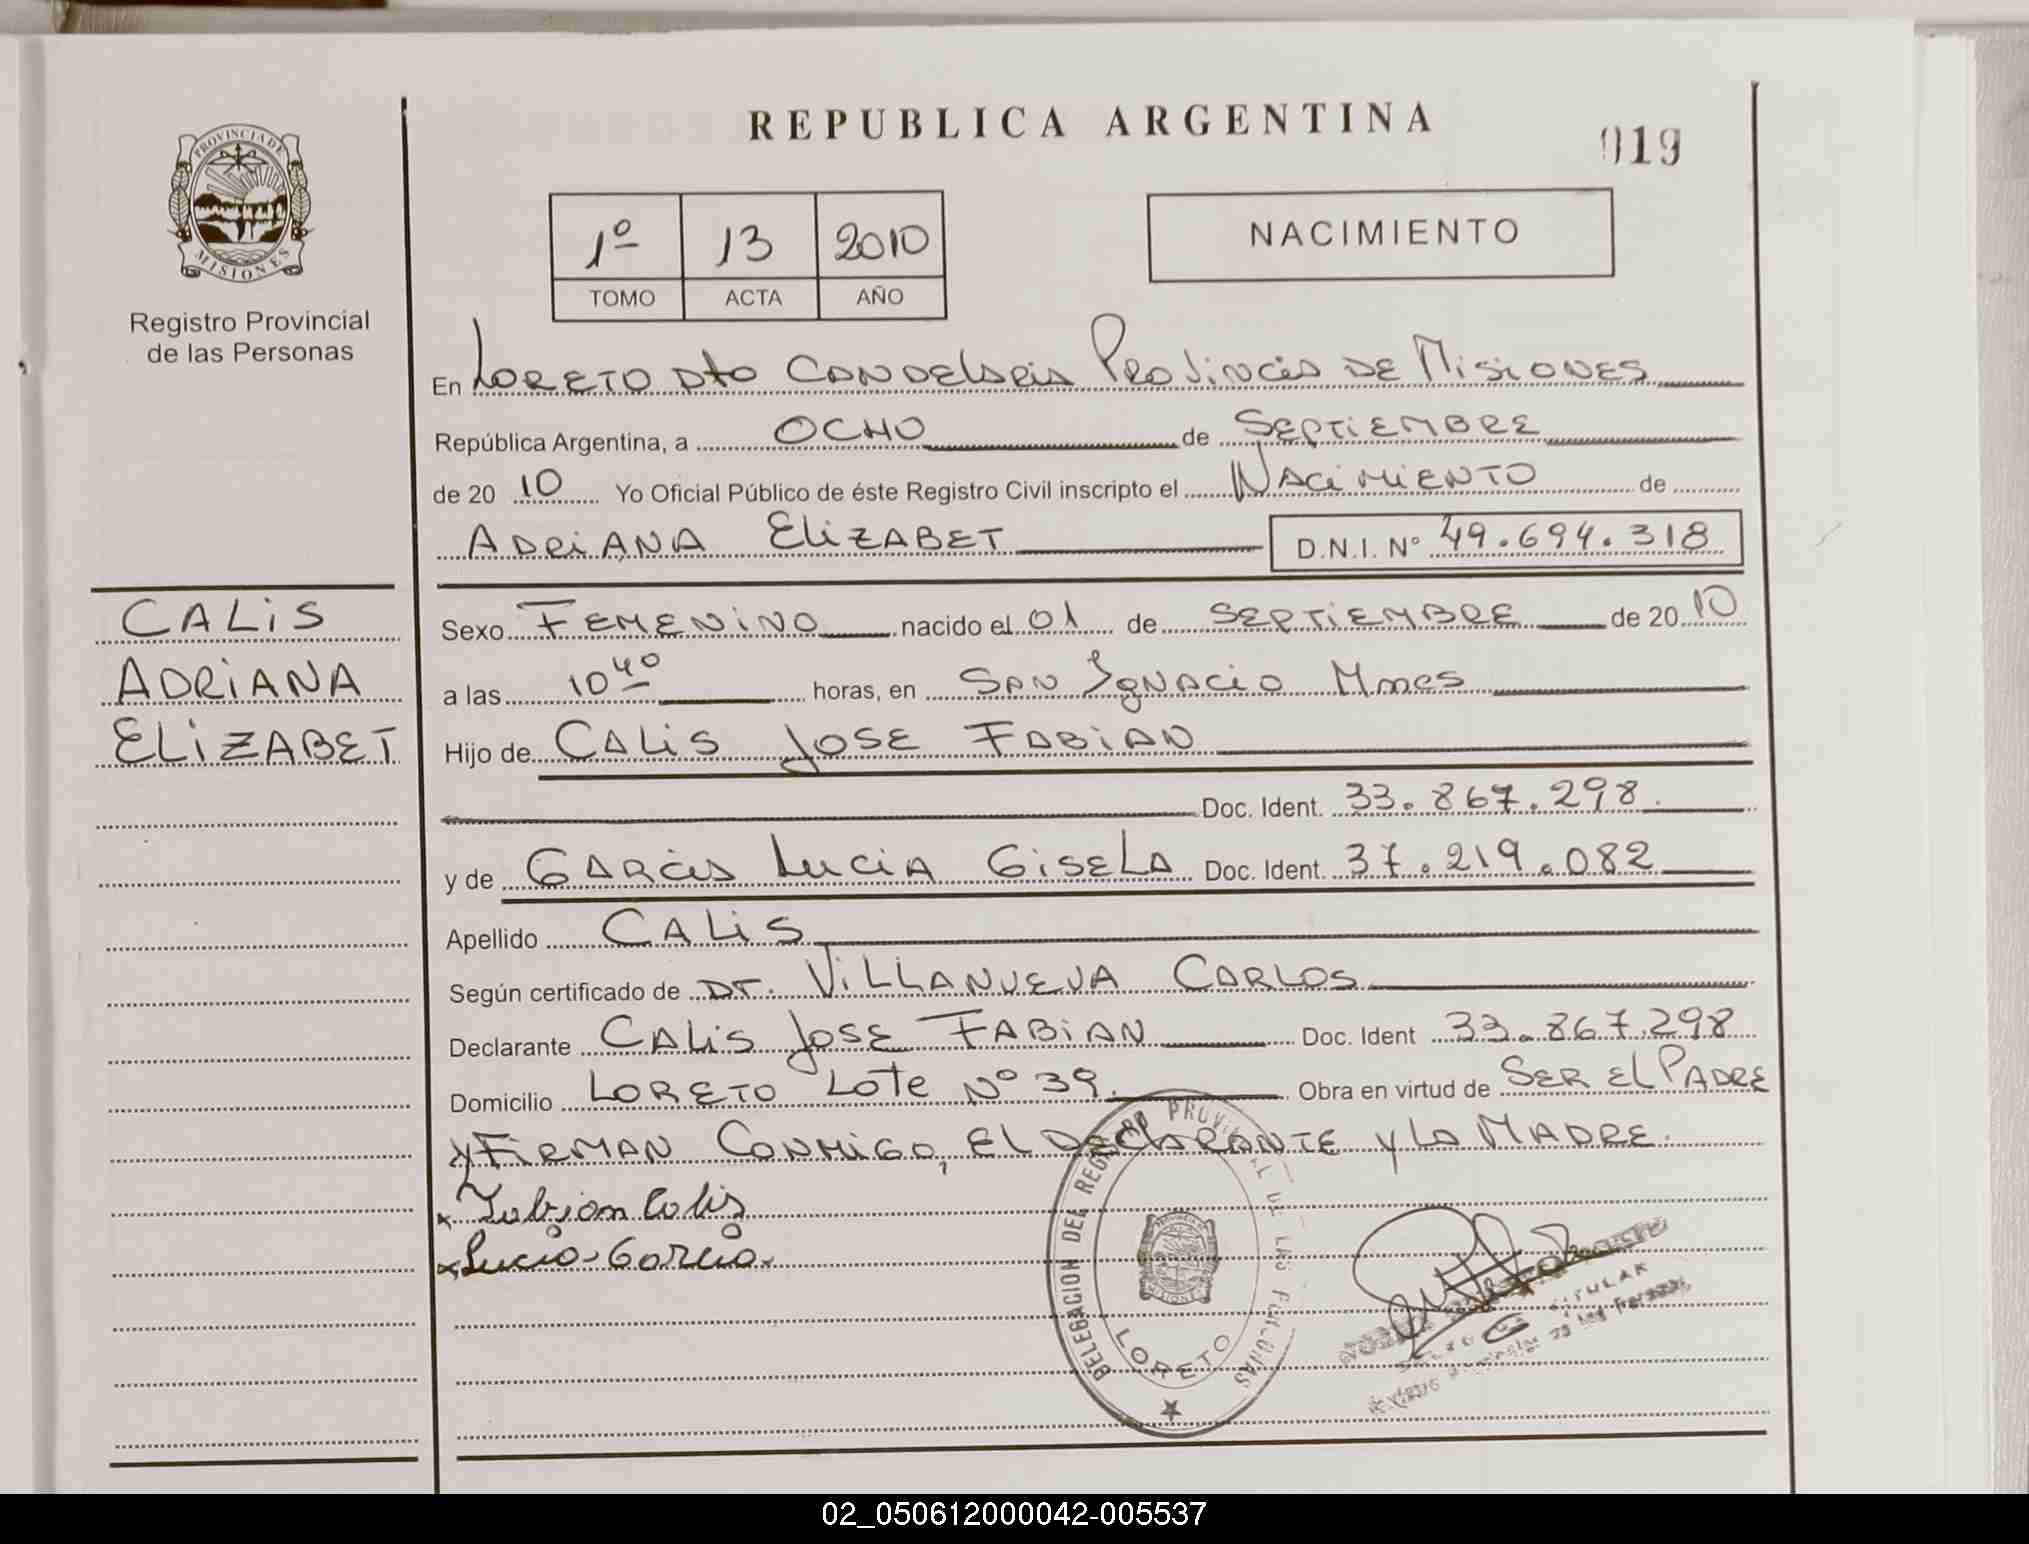 REPUBLICA ARGENTINA
019
PROVINCIA DE
MISIONES
Registro Provincial
de las Personas
1º 13 2010
TOMO ACTA AÑO
NACIMIENTO
En LORETO Dto CANDELARIA PROVINCIA DE MISIONES
República Argentina, a OCHO de SEPTIEMBRE
de 20 10 Yo Oficial Público de éste Registro Civil inscripto el NACIMIENTO de
ADRIANA ELIZABET D.N.I. Nº 49.694.318
CALIS
ADRIANA
ELIZABET
Sexo FEMENINO nacido el 01 de SEPTIEMBRE de 20 10
a las 10 40 horas, en SAN IGNACIO Mnes
Hijo de CALIS JOSE FABIAN
Doc. Ident. 33.867.298
y de GARCIA LUCIA GISELA Doc. Ident. 37.219.082
Apellido CALIS
Según certificado de DT. VILLANUEVA CARLOS
Declarante CALIS JOSE FABIAN Doc. Ident 33.867.298
Domicilio LORETO LOTE Nº 39. Obra en virtud de SER EL PADRE
Y FIRMAN CONMIGO, EL DECLARANTE Y LA MADRE.
x Fabian Calis
x Lucia Garcia.
DELEGACION DEL REGISTRO PROVINCIAL DE LAS PERSONAS
LORETO
TITULAR
02_050612000042-005537